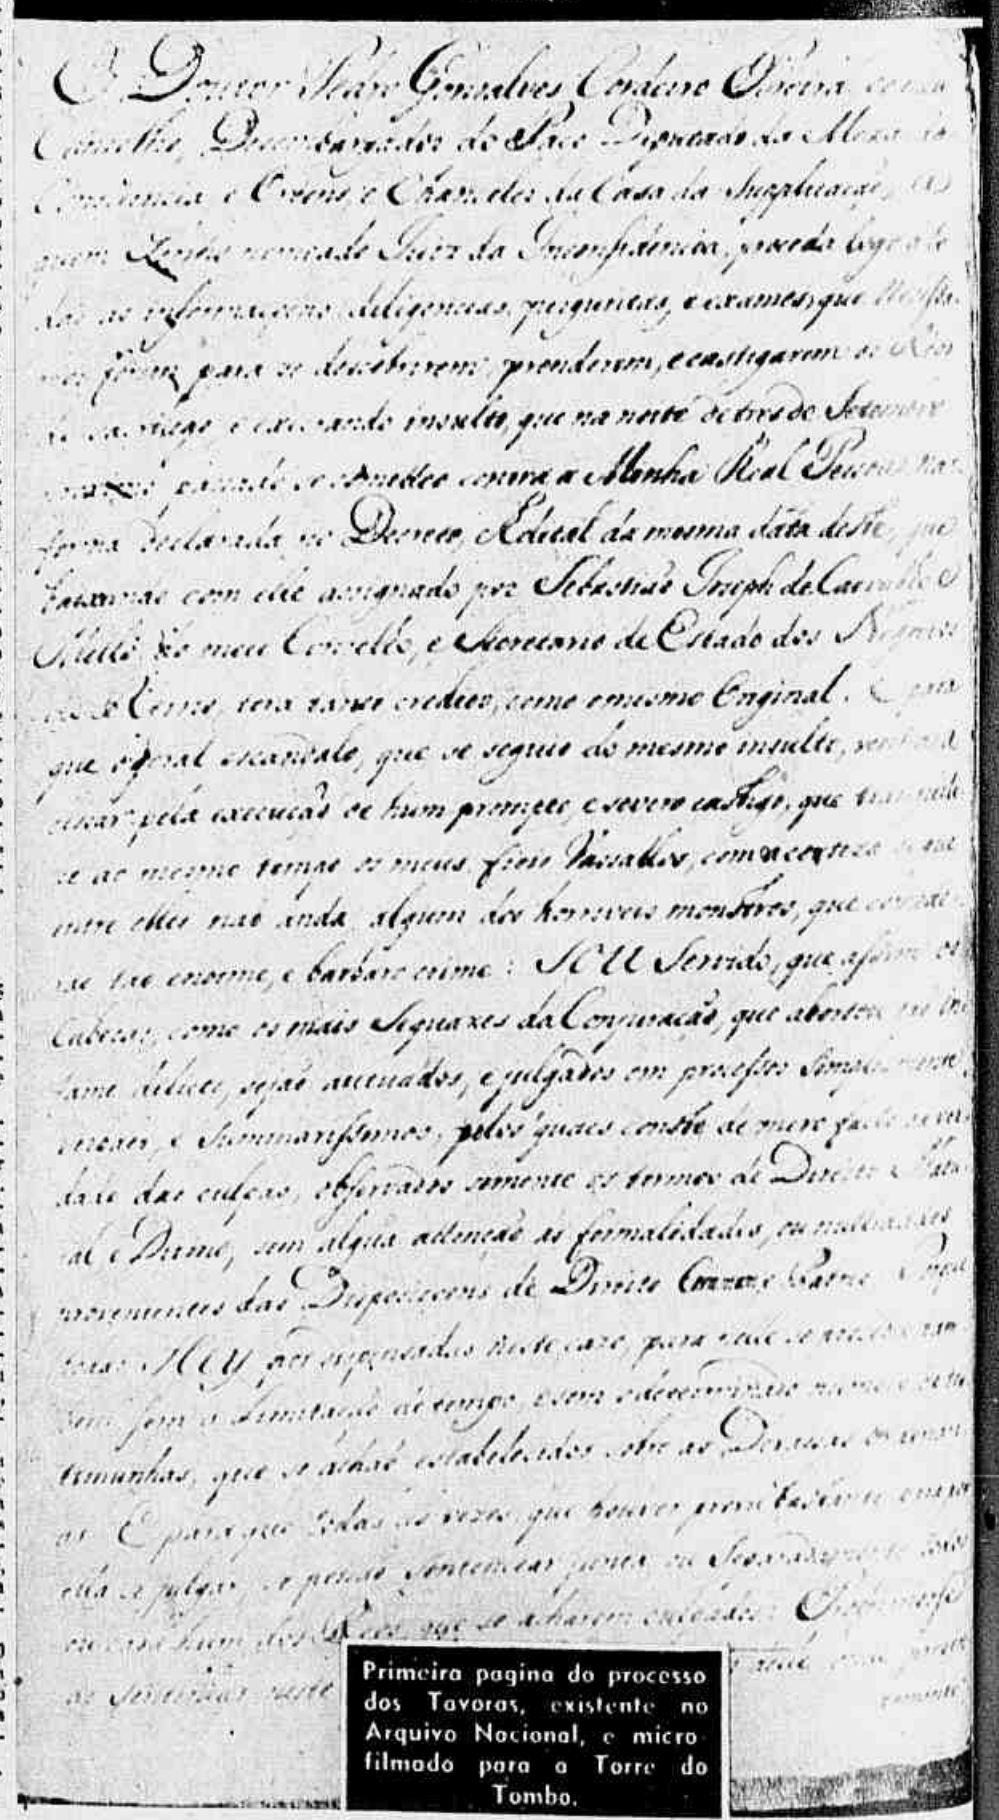 O Doutor Pedro Gonsalves Cordeiro Pereira do meu
Concelho, Dezembargador do Paço Deputado da Meza da
Consciencia, e Ordens, e Chanceller da Casa da Supplicação, a
quem Tenho nomeado Juiz da Inconfidencia, proceda logo a to
das as informaçoens, diligencias, perguntas, e exames, que necessa
rios forem para se descobrirem, prenderem, e castigarem os Réos
do sacrilego, e execrando insulto, que na noite de tres de Setembro
proximo passado se cometteo contra a Minha Real Pessoa na
forma declarada no Decreto, e Edital da mesma data deste, que
baixarão com elle assignado por Sebastião Joseph de Carvalho e
Mello do meu Concelho, e Secretario de Estado dos Negocios
do Reino, terá tanto credito, como o mesmo Original. E para
que o geral escandalo, que se seguio do mesmo insulto,
pela execução de hum prompto, e severo castigo, que tranquilli
ze ao mesmo tempo os meus fieis Vassallos, com a certeza de que
entre elles não anda algum dos horriveis monstros, que
tão enorme, e barbaro crime: SOU Servido, que assim os
Cabeças, como os mais Sequazes da Conjuração, que abortou tão in
fame delicto, sejão autuados, e julgados em processos simplesmente
verbaes, e summarissimos, pelos quaes conste de mero facto a ver
dade das culpas, observados somente os termos de Direito Natu
ral, e Divino, sem algũa attenção ás formalidades, ou nullidades
provenientes das Disposiçoens de Direito Commum, e Patrio
HEY por dispensadas neste caso, para nelle se proceder tam
bem sem a limitação de tempo, e sem o determinado numero de tes
temunhas, que se achão estabelecidos sobre as Devassas
E para que todas as vezes, que houver prova bastante
ella se julgar se possão sentencear juntos ou separadamente todos
ou cada hum dos Réos, que se acharem culpados:
as sentenças neste
Primeira pagina do processo
dos Tavoras, existente no
Arquivo Nacional, e micro-
filmado para a Torre do
Tombo.